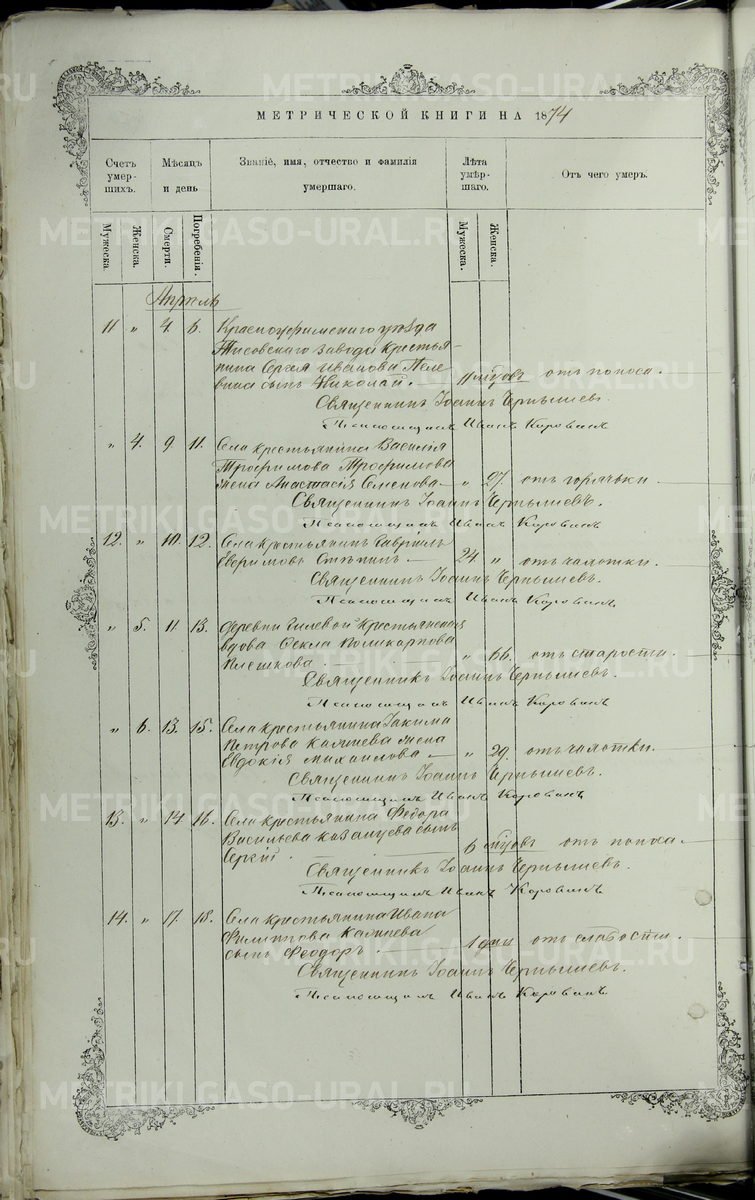 МЕТРИЧЕСКОЙ КНИГИ НА 1874
Счетъ умерших. Мѣсяцъ и день Званіе, имя, отчество и фамилія умершаго. Лѣта умѣршаго. Отъ чего умеръ.
Мужеска. Женска. Смерти. Погребенія. Мужеска. Женска.
Апрѣль
11 „ 4. 6. Красноуфимскаго уѣзда
Тисовскаго завода крестья-
нина Сергея Иванова Пеле
вина сынъ Николай. — 11 мѣсцовъ отъ поноса.
Священникъ Іоаннъ Чернышевъ.
Псаломщикъ Иванъ Коровинъ
„ 4. 9 11. Села крестьянина Василія
Трофимова Трофимова
жена Анастасія Семенова — „ 27. отъ горячьки.
Священникъ Іоаннъ Чернышевъ.
Псаломщикъ Иванъ Коровинъ
12. „ 10. 12. Села крестьянинъ Гавріилъ
Евфимовъ — 24. „ отъ чахотки.
Священникъ Іоаннъ Чернышевъ.
Псаломщикъ Иванъ Коровинъ
„ 5. 11. 13. Деревни Гилевой крестьянская
вдова Фекла Поликарпова
Плешкова. — „ 66. отъ старости.
Священникъ Іоаннъ Чернышевъ.
Псаломщикъ Иванъ Коровинъ
„ 6. 13. 15. Села крестьянина Іакима
Петрова жена
Евдокія Михаилова — „ 29. отъ чахотки.
Священникъ Іоаннъ Чернышевъ.
Псаломщикъ Иванъ Коровинъ
13. „ 14 16. Села крестьянина Федора
Васильева Казанцева сынъ
Сергій. — 6 мѣсцовъ отъ поноса.
Священникъ Іоаннъ Чернышевъ.
Псаломщикъ Иванъ Коровинъ
14. „ 17. 18. Села крестьянина Ивана
Филиппова
сынъ Феодоръ — 1 дня отъ слабости.
Священникъ Іоаннъ Чернышевъ.
Псаломщикъ Иванъ Коровинъ
METRIKI.GASO-URAL.RU